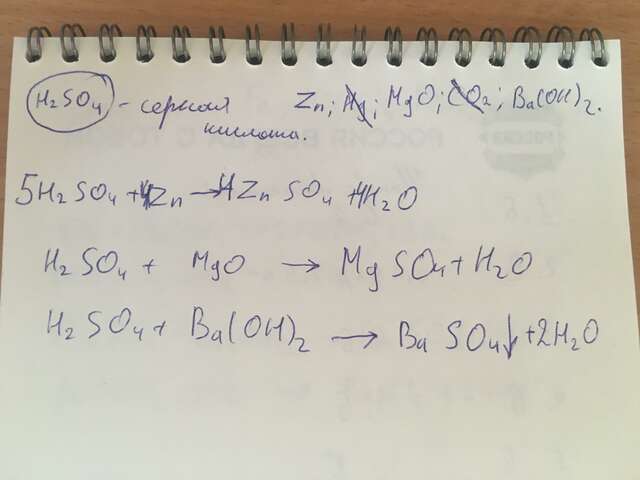 H2SO4 - серная Zn; Hg; MgO; CO2; Ba(OH)2.
кислота.
5H2SO4 + 4Zn → 4Zn SO4 + 4H2O
H2SO4 + MgO → Mg SO4 + H2O
H2SO4 + Ba(OH)2 → Ba SO4↓ + 2H2O